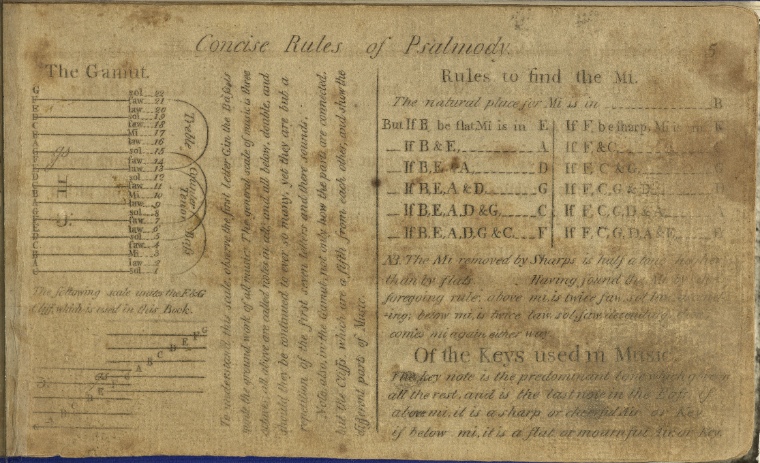 Concise Rules of Psalmody.
5
The Gamut.
G sol 22
F faw 21
E law 20
D sol 19
C faw 18
B Mi 17
A law 16
G sol 15
F faw 14
E law 13
D sol 12
C faw 11
B Mi 10
A law 9
G sol 8
F faw 7
E law 6
D sol 5
C faw 4
B Mi 3
A law 2
G sol 1
Treble
Counter
Tenor
Bass
The following scale unites the F & G
Cliff, which is used in this Book.
To understand this scale, observe the first Letter G in the Bass is
made the ground work of all music. The general scale of music is three
octaves, all above are called notes in alt; and, all below, double, and
should they be continued to ever so many, yet they are but a
repetition of the first seven letters and their sounds.
Note also, in the Gamut, not only how the parts are connected,
but the Cliffs which are a fifth from each other, and show the
different parts of Music.
Rules to find the Mi.
The natural place for Mi is in B
But If B, be flat Mi is in E
If B & E, A
If B, E & A, D
If B, E, A & D, G
If B, E, A, D & G, C
If B, E, A, D, G & C, F
If F, be sharp, Mi
If F, & C,
If F, C & G
If F, C, G &
If F, C, G, D &
If F, C, G, D, A & E,
NB. The Mi removed by Sharps is half a
than by flats Having found the Mi by
foregoing rule; above mi, is twice faw sol law
-ing; below mi, is twice law sol faw descending
comes mi again either way
Of the Keys used in Music.
The key note is the predominant tone which
all the rest, and is the last note in the Bass if
above mi, it is a sharp or cheerful Air or Key
if below mi, it is a flat or mournful Air or Key.